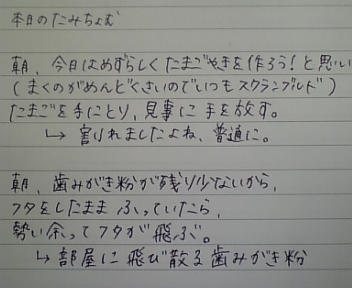 本日のたみちょむ
朝、今日はめずらしくたまごやきを作ろう!と思い
(まくのがめんどくさいのでいつもスクランブルド)
たまごを手にとり、見事に手を放す。
↳ 割れましたよね、普通に。
朝、歯みがき粉が残り少ないから、
フタをしたままふっていたら、
勢い余ってフタが飛ぶ。
↳ 部屋に飛び散る歯みがき粉